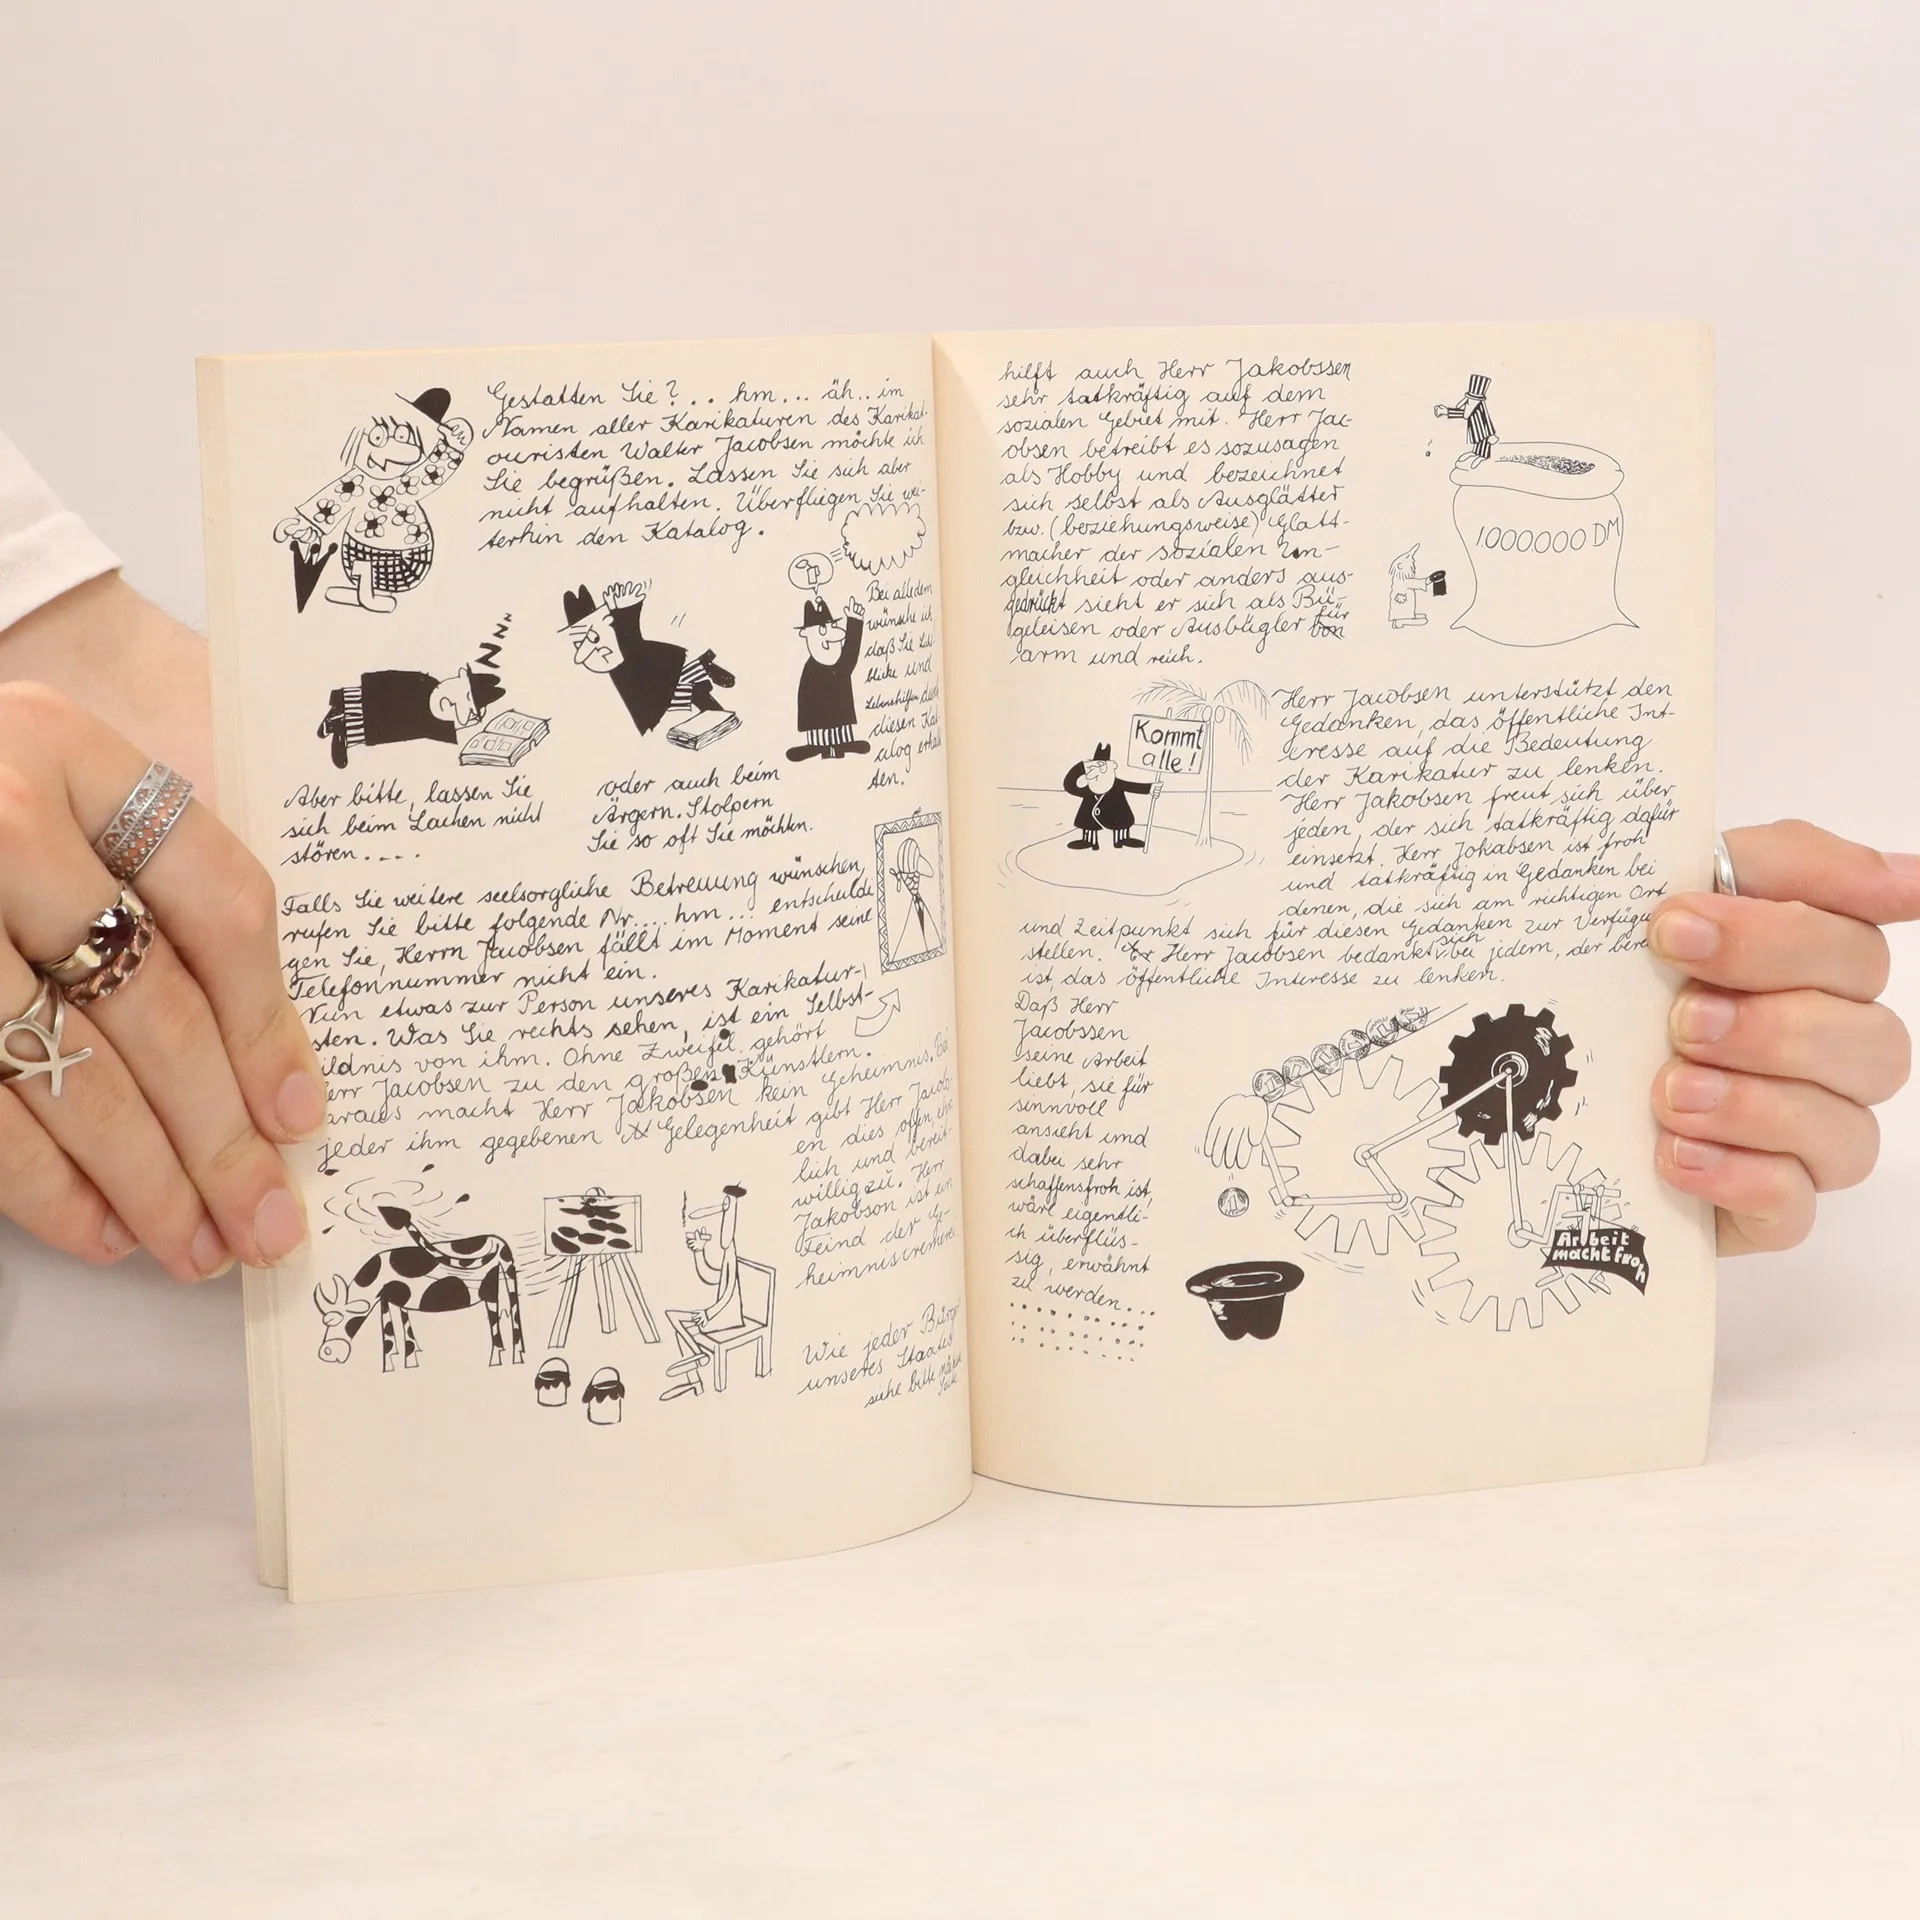 Gestatten Sie? .. hm... äh.. im
Namen aller Karikaturen des Karikat-
ouristen Walter Jacobsen möchte ich
Sie begrüßen. Lassen Sie sich aber
nicht aufhalten. Überfliegen Sie wei-
terhin den Katalog.
NNNN
Bei alledem
wünsche ich
daß Sie
blicke und
Lebenshilfen durch
diesen Kat-
alog erhal
ten.
Aber bitte, lassen Sie
sich beim Lachen nicht
stören....
oder auch beim
Ärgern. Stolpern
Sie so oft Sie möchten.
Falls Sie weitere seelsorgliche Betreuung wünschen,
rufen Sie bitte folgende Nr.... hm... entschuldi
gen Sie, Herrn Jacobsen fällt im Moment seine
Telefonnummer nicht ein.
Nun etwas zur Person unseres Karikatur-
sten. Was Sie rechts sehen, ist ein Selbst-
ildnis von ihm. Ohne Zweifel gehört
err Jacobsen zu den großen Künstlern.
araus macht Herr Jakobsen kein Geheimnis. Bei
jeder ihm gegebenen Gelegenheit gibt Herr Jacobs
en dies offen,
lich und bereit-
willig zu. Herr
Jakobson ist ein
Feind der Ge-
heimniscremerei.
Wie jeder Bürger
unseres Staates
siehe bitte nächste
Seite
hilft auch Herr Jakobssen
sehr tatkräftig auf dem
sozialen Gebiet mit. Herr Jac-
obsen betreibt es sozusagen
als Hobby und bezeichnet
sich selbst als Ausglätter
bzw. (beziehungsweise) Glatt-
macher der sozialen Un-
gleichheit oder anders aus-
gedrückt sieht er sich als Bü-
geleisen oder Ausbügler für von
arm und reich.
1.000000 DM
Kommt
alle!
Herr Jacobsen unterstützt den
Gedanken, das öffentliche Int-
eresse auf die Bedeutung
der Karikatur zu lenken.
Herr Jakobsen freut sich über
jeden, der sich tatkräftig dafür
einsetzt. Herr Jokabsen ist froh
und tatkräftig in Gedanken bei
denen, die sich am richtigen Ort
und Zeitpunkt sich für diesen Gedanken zur Verfügu
stellen. Er Herr Jacobsen bedankt sich bei jedem, der bere
ist, das öffentliche Interesse zu lenken.
Daß Herr
Jacobssen
seine Arbeit
liebt, sie für
sinnvoll
ansieht und
dabei sehr
schaffensfroh ist,
wäre eigentli-
ch überflüs-
sig, erwähnt
zu werden...
1
Arbeit
macht froh